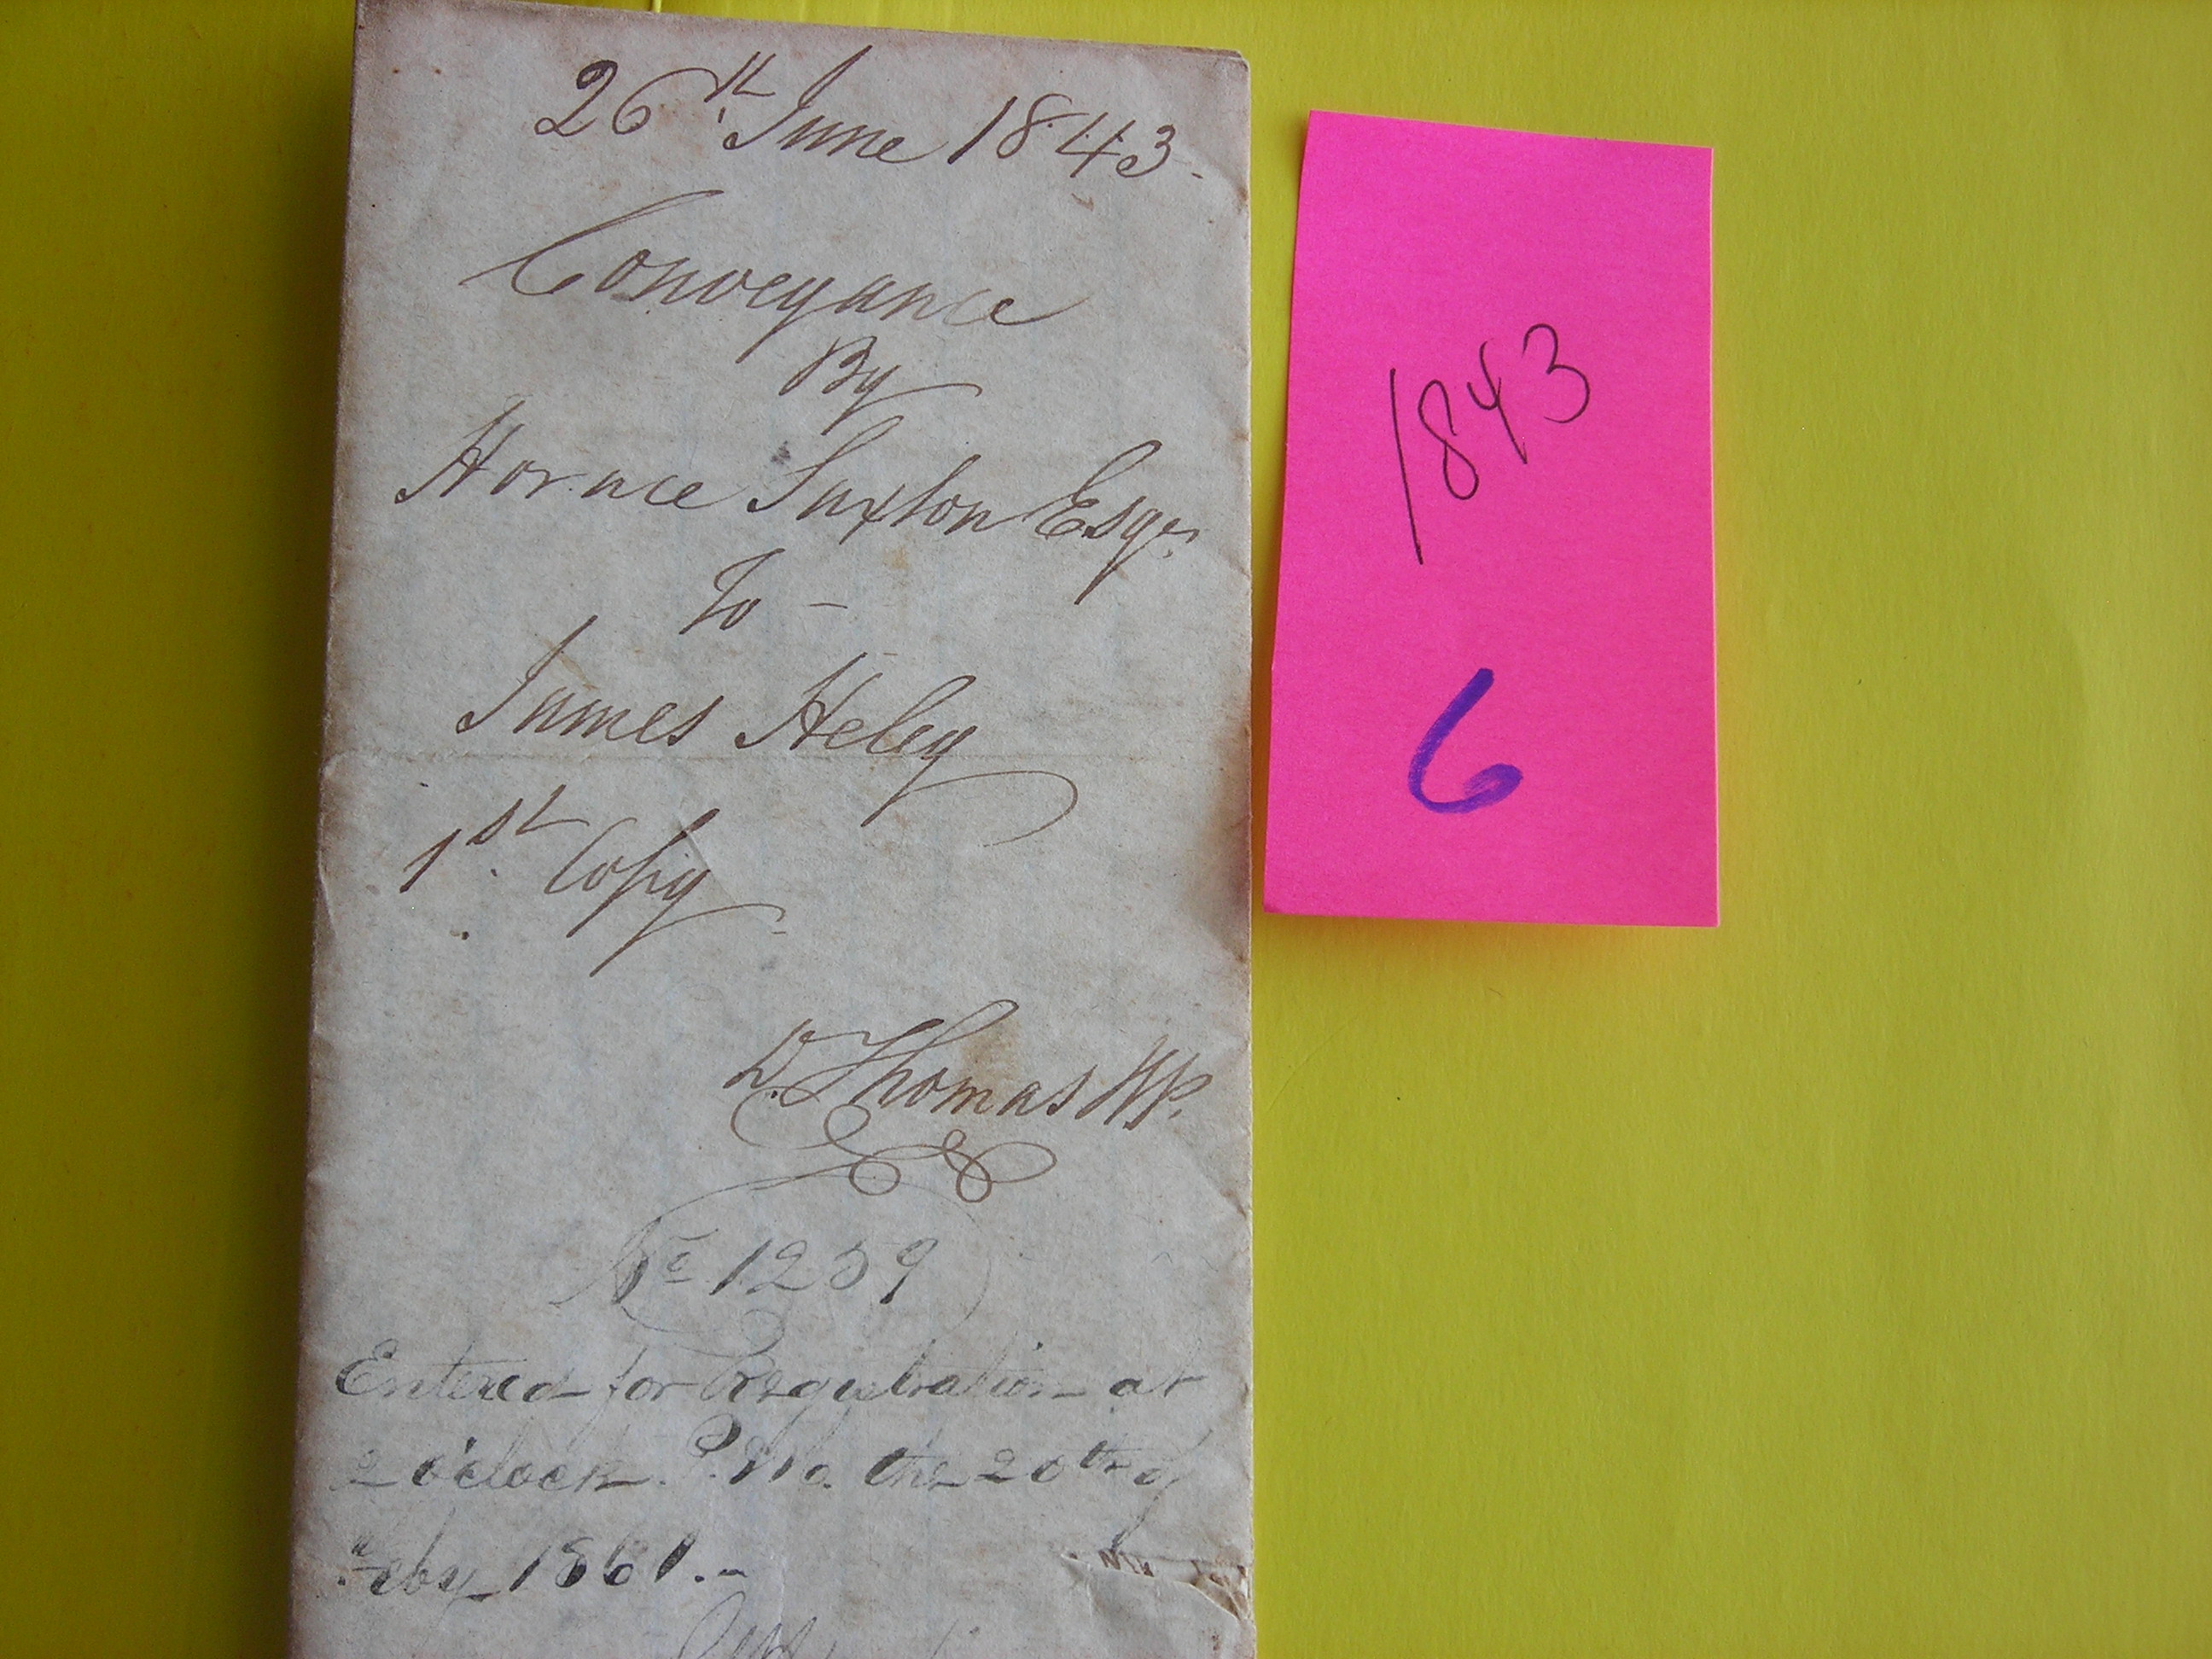 26th June 1843.
Conveyance
By
Horace Saxton Esqr.
To –
James Heley
1st. Copy
D. Thomas N.P.
No 1259
Entered for Registration at
2 o'clock P.M. the 20th of
Feby 1861.-
1843
6